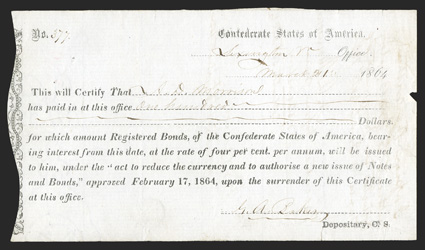 No. 577 Confederate States of America,
Lexington Va Office
March 31 1864
This will Certify That
has paid in at this office One hundred
Dollars,
for which amount Registered Bonds, of the Confederate States of America, bear-
ing interest from this date, at the rate of four per cent. per annum, will be issued
to him, under the "act to reduce the currency and to authorise a new issue of Notes
and Bonds," approved February 17, 1864, upon the surrender of this Certificate
at this office.
G. A. Baker
Depositary, C. S.